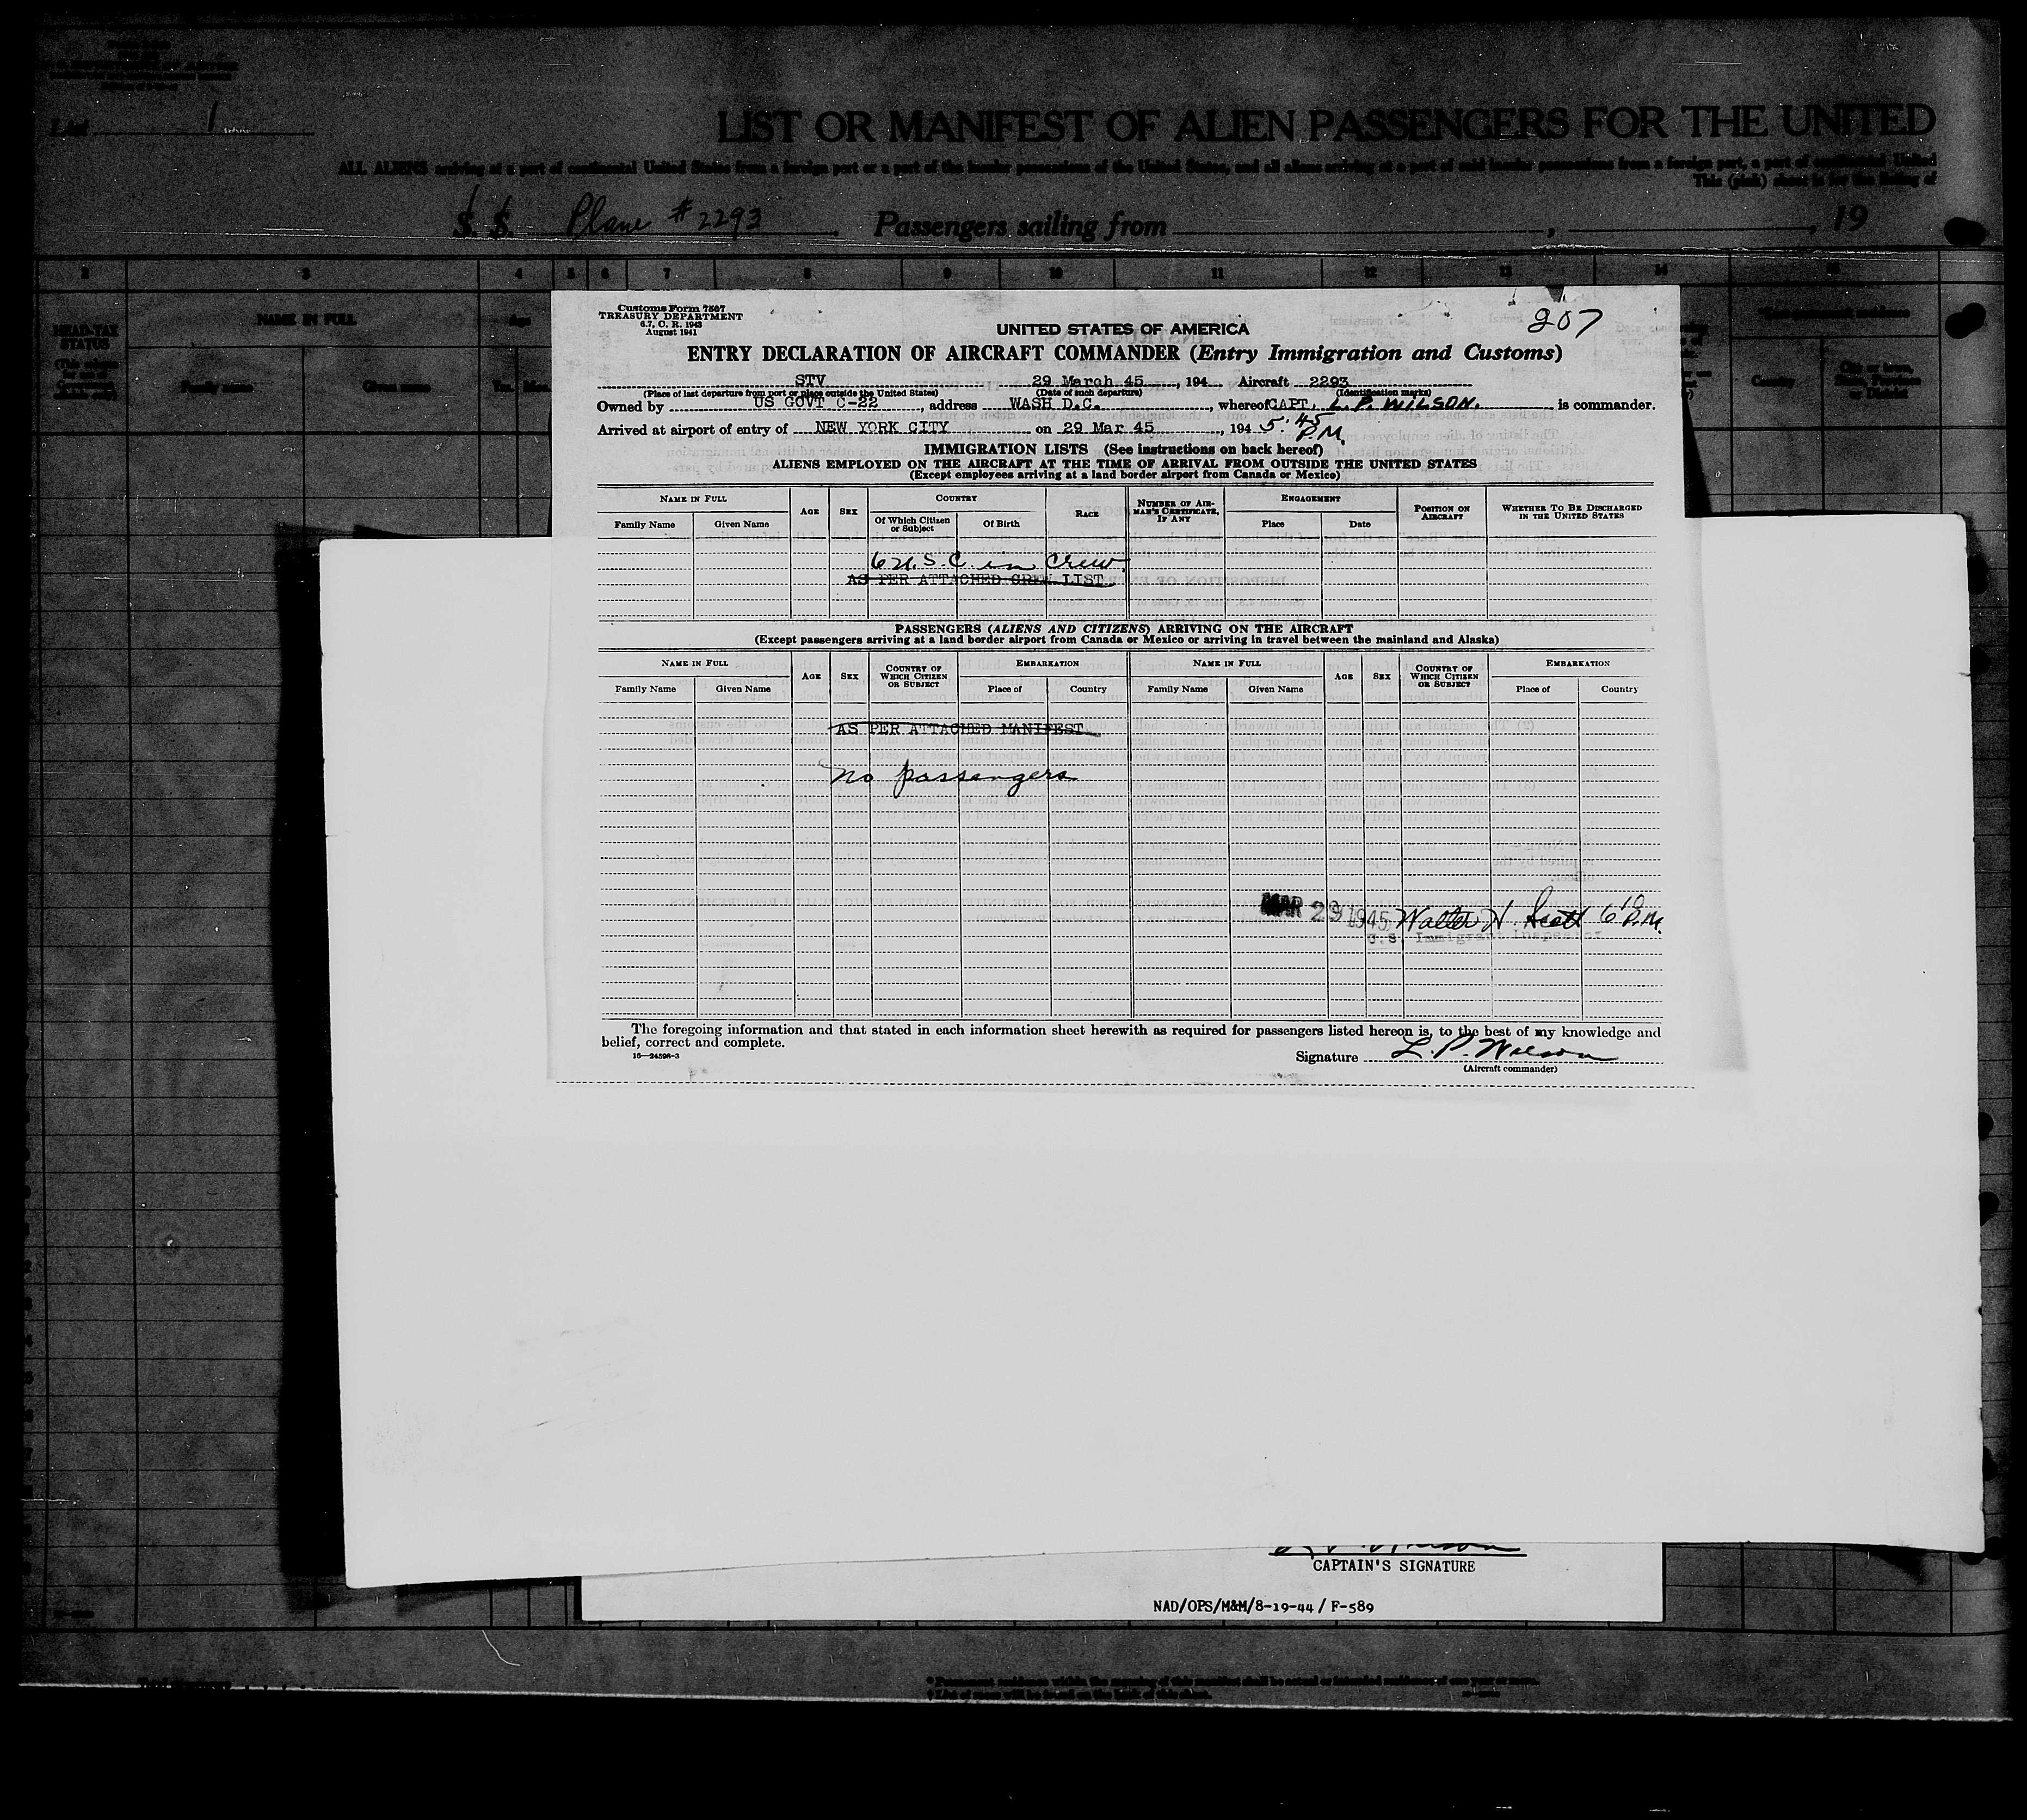 List 1
LIST OR MANIFEST OF ALIEN PASSENGERS FOR THE UNITED
ALL ALIENS arriving at a port of continental United States from a foreign port or a port of the insular possessions of the United States, and all aliens arriving at a port of said insular possessions from a foreign port, a port of continental United
This (pink) sheet is for the listing of
S. S. Plane # 2293 Passengers sailing from , , 19
2 3 4 5 6 7 8 9 10 11 12 13 14
HEAD-TAX STATUS
NAME IN FULL
Age
Family name Given name Yrs. Mos.
Country
Customs Form 7507
TREASURY DEPARTMENT
August 1941
207
UNITED STATES OF AMERICA
ENTRY DECLARATION OF AIRCRAFT COMMANDER (Entry Immigration and Customs)
STV 29 March 45, 194 Aircraft 2293
(Place of last departure from port or place outside the United States) (Date of such departure) (Identification marks)
Owned by US GOVT C-22, address WASH D.C., whereof CAPT. L. P. WILSON. is commander.
Arrived at airport of entry of NEW YORK CITY on 29 Mar 45, 194 5:45 P.M.
IMMIGRATION LISTS (See instructions on back hereof)
ALIENS EMPLOYED ON THE AIRCRAFT AT THE TIME OF ARRIVAL FROM OUTSIDE THE UNITED STATES
(Except employees arriving at a land border airport from Canada or Mexico)
NAME IN FULL AGE SEX COUNTRY RACE NUMBER OF AIRMAN'S CERTIFICATE, IF ANY ENGAGEMENT POSITION ON AIRCRAFT WHETHER TO BE DISCHARGED IN THE UNITED STATES
Family Name Given Name Of Which Citizen or Subject Of Birth Place Date
6 U.S.C. in Crew.
AS PER ATTACHED CREW LIST
PASSENGERS (ALIENS AND CITIZENS) ARRIVING ON THE AIRCRAFT
(Except passengers arriving at a land border airport from Canada or Mexico or arriving in travel between the mainland and Alaska)
NAME IN FULL AGE SEX COUNTRY OF WHICH CITIZEN OR SUBJECT EMBARKATION NAME IN FULL AGE SEX COUNTRY OF WHICH CITIZEN OR SUBJECT EMBARKATION
Family Name Given Name Place of Country Family Name Given Name Place of Country
AS PER ATTACHED MANIFEST
No passengers
MAR 29 1945 Walter H. Scott 6 10 P.M.
U.S. Immigrant Inspector
The foregoing information and that stated in each information sheet herewith as required for passengers listed hereon is, to the best of my knowledge and
belief, correct and complete.
16—24598-3
Signature L. P. Wilson
(Aircraft commander)
CAPTAIN'S SIGNATURE
NAD/OPS/M&M/8-19-44 / F-589
* Permanent residence within the meaning of this manifest shall be actual or intended residence of one year or more.